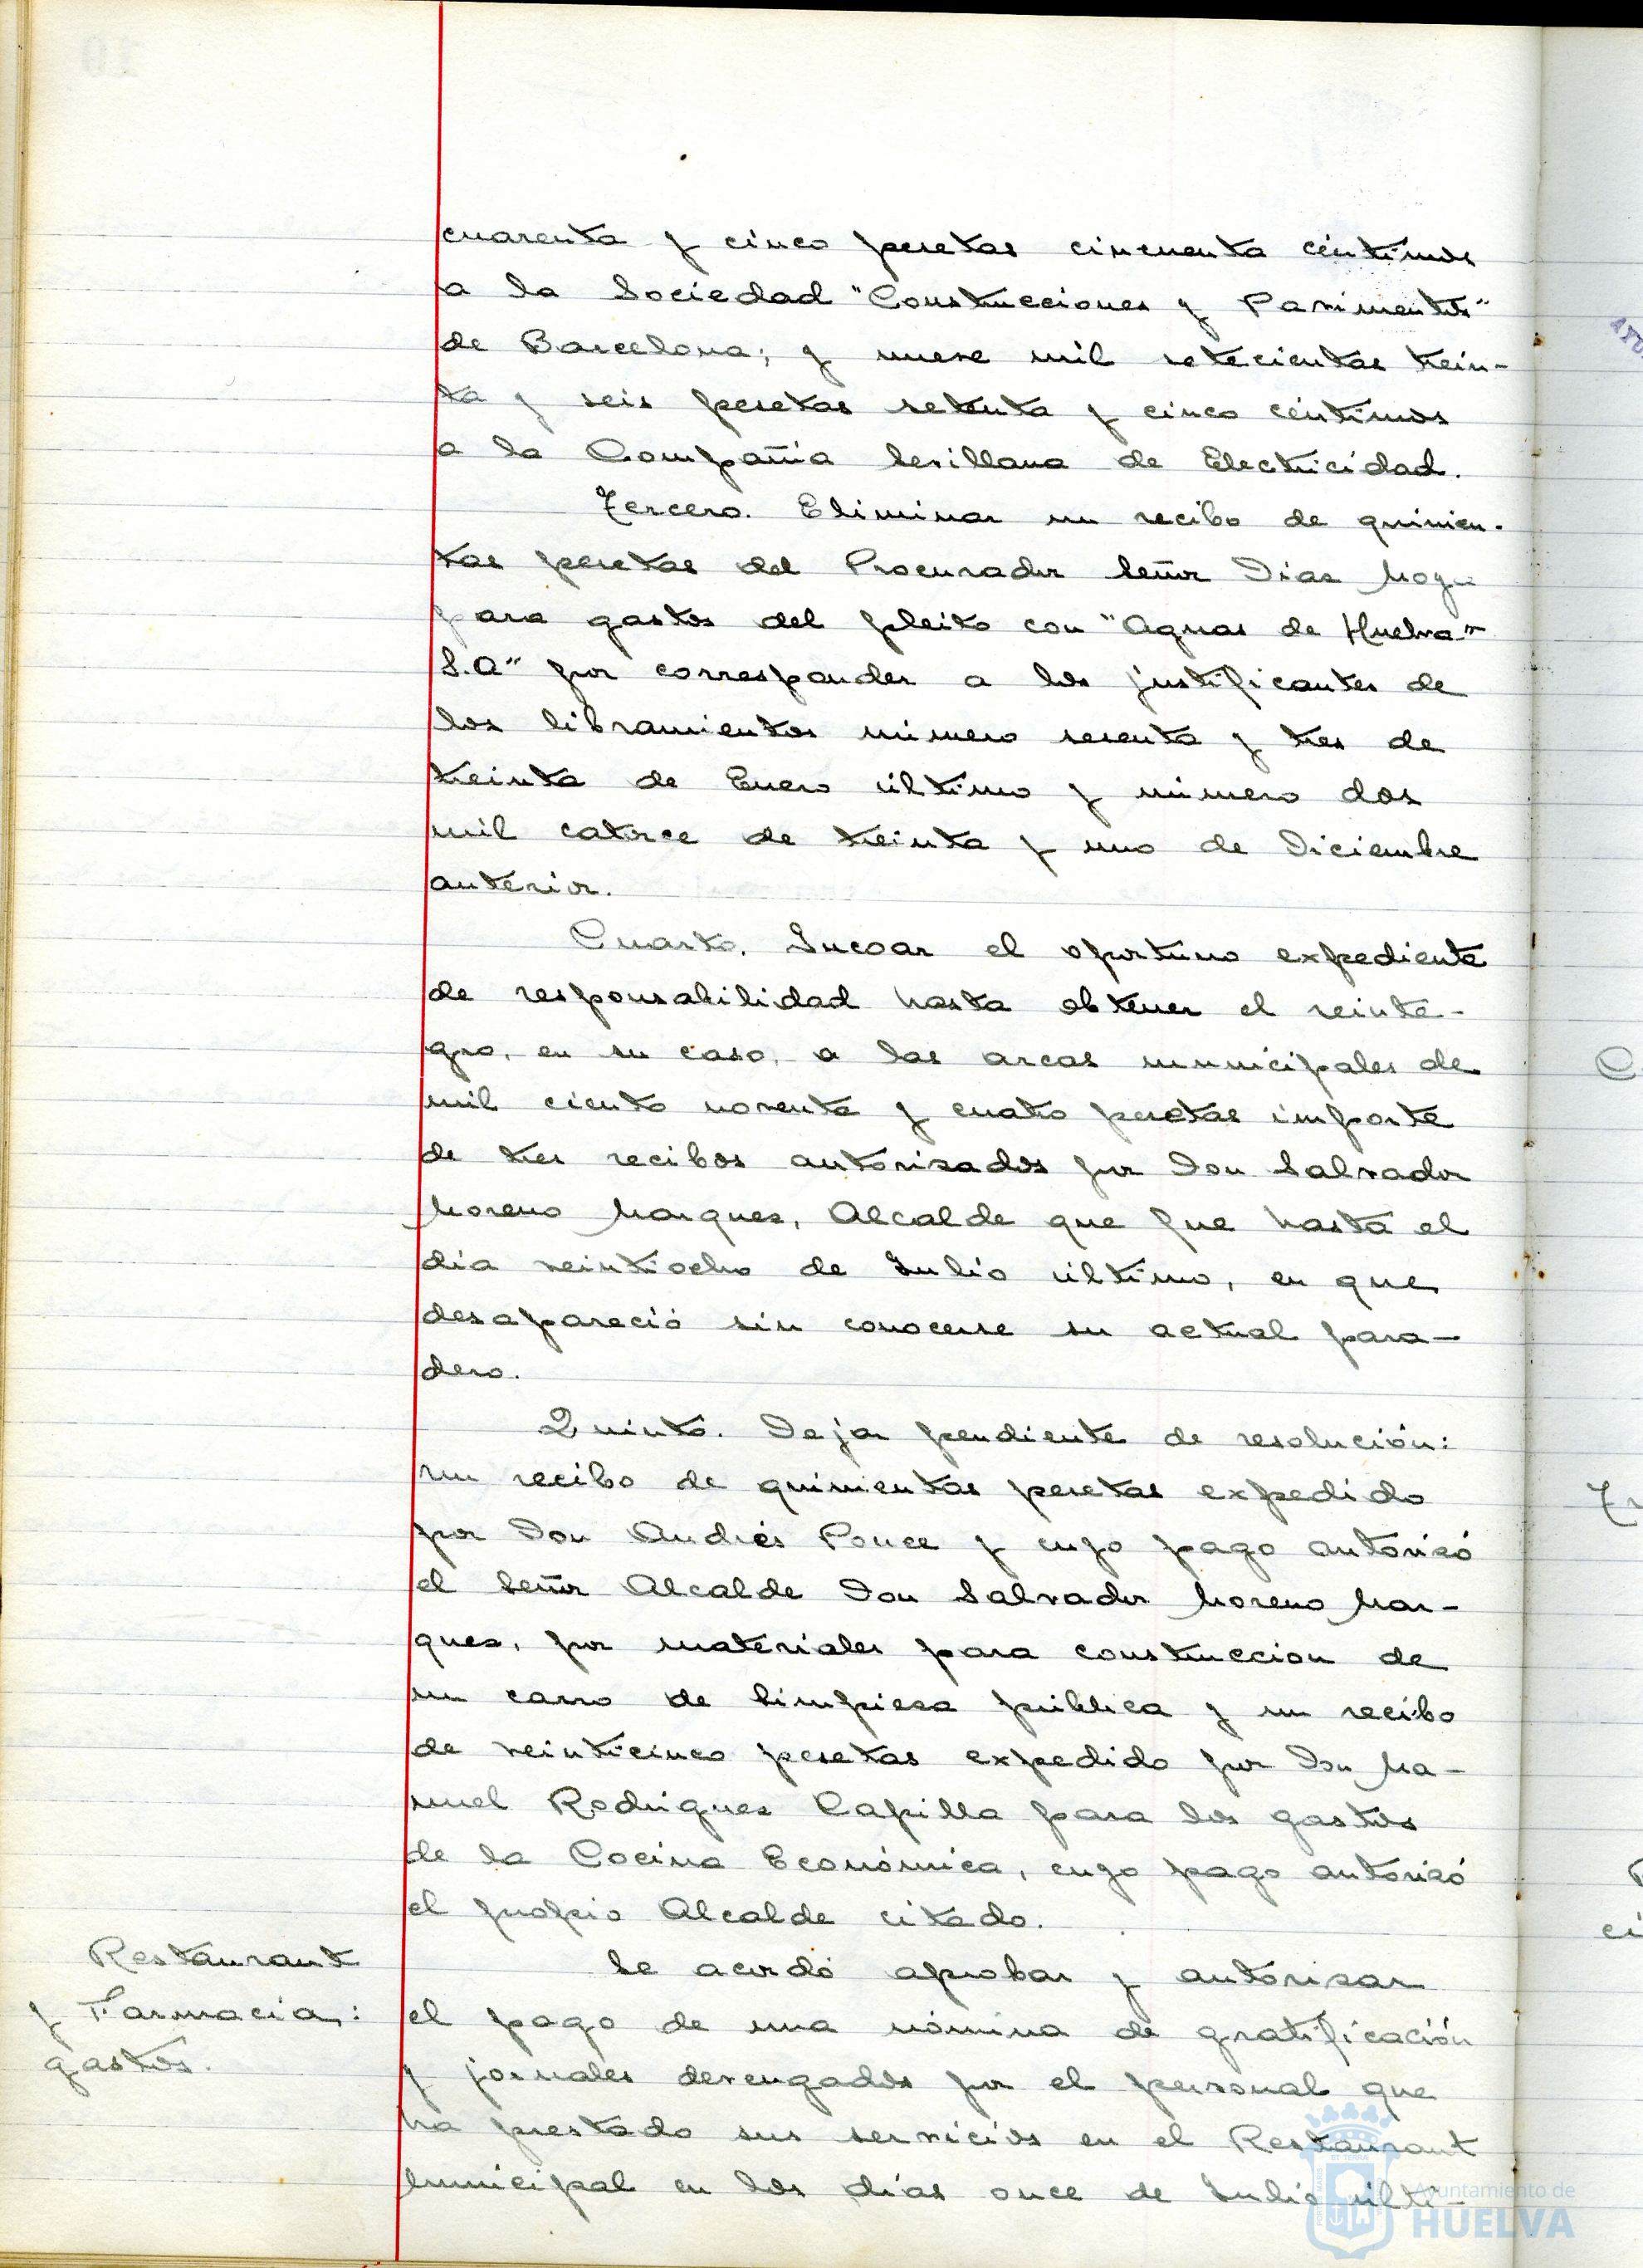 cuarenta y cinco pesetas cincuenta céntimos
a la Sociedad "Construcciones y Pavimentos"
de Barcelona; y nueve mil setecientas trein-
ta y seis pesetas setenta y cinco céntimos
a la Compañia Sevillana de Electricidad.
Tercero. Eliminar un recibo de quinien-
tas pesetas del Procurador Señor Diaz
para gastos del pleito con "Aguas de Huelva"
S.A" por corresponder a los justificantes de
los libramientos número sesenta y tres de
treinta de Enero último y número dos
mil catorce de treinta y uno de Diciembre
anterior.
Cuarto. Incoar el oportuno expediente
de responsabilidad hasta obtener el reinte-
gro, en su caso, a las arcas municipales de
mil ciento noventa y cuatro pesetas importe
de tres recibos autorizados por Don Salvador
Moreno Marquez, Alcalde que fue hasta el
dia veintiocho de Julio último, en que
desapareció sin conocerse su actual para-
dero.
Quinto. Dejar pendiente de resolución:
un recibo de quinientas pesetas expedido
por Don Andrés Ponce y cuyo pago autorizó
el Señor Alcalde Don Salvador Moreno Mar-
quez, por materiales para construccion de
un carro de limpieza pública y un recibo
de veinticinco pesetas expedido por Don Ma-
nuel Rodriguez Capilla para los gastos
de la Cocina Económica, cuyo pago autorizó
el propio Alcalde citado.
Restaurant
y Farmacia:
gastos.
Se acordó aprobar y autorizar
el pago de una nómina de gratificación
y jornales devengados por el personal que
ha prestado sus servicios en el Restaurant
Municipal en los días once de Julio últi-
Ayuntamiento de
HUELVA